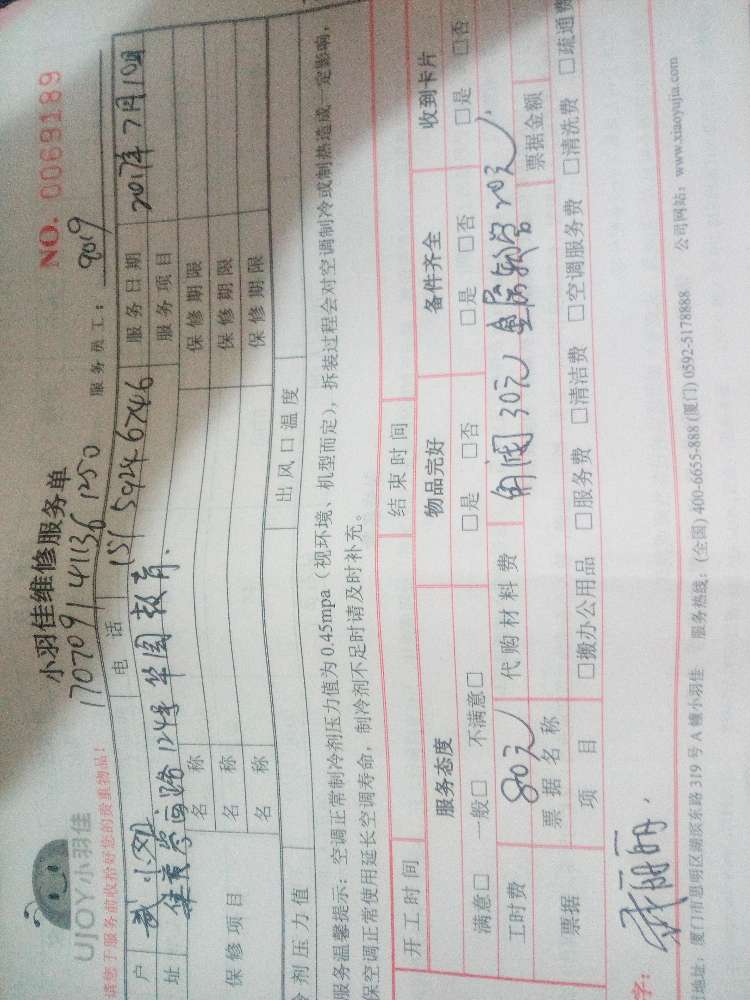 UJOY小羽佳
小羽佳维修服务单
NO. 0069189
1707091411361250
请您于服务前收拾好您的贵重物品!
服务员工: 9019
户
电话 15159246746
服务日期 2017年7月10日
址 集美 路124号华图教育.
服务项目
保修项目
名称
保修期限
名称
保修期限
名称
保修期限
剂压力值
出风口温度
服务温馨提示:空调正常制冷剂压力值为0.45mpa(视环境、机型而定),拆装过程会对空调制冷或制热造成一定影响,
保空调正常使用延长空调寿命,制冷剂不足时请及时补充。
开工时间
结束时间
服务态度
物品完好
备件齐全
收到卡片
满意□ 一般□ 不满意□
□是 □否
□是 □否
□是 □否
工时费 80元
代购材料费 角阀30元 金属软管20元
票据
票据名称
票据金额
项目
□搬办公用品 □服务费 □清洁费 □空调服务费 □清洗费 □疏通费
字:
地址:厦门市思明区湖滨东路319号A幢小羽佳 服务热线:(全国) 400-6655-888 (厦门) 0592-5178888 公司网站:www.xiaoyujia.com